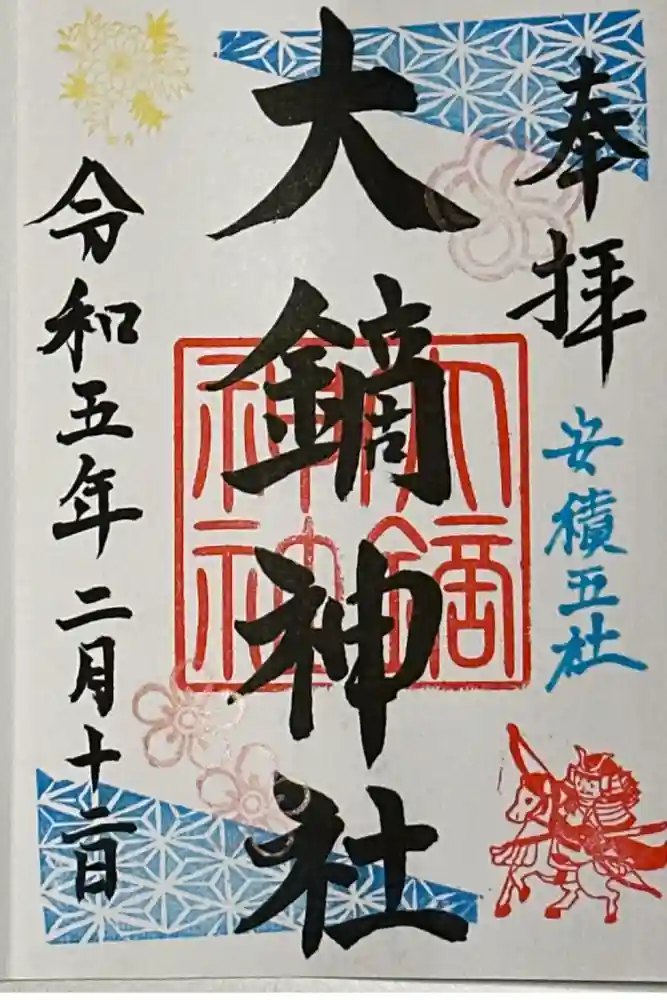 奉拝
安積五社
大鏑神社
大鏑神社
令和五年二月十二日